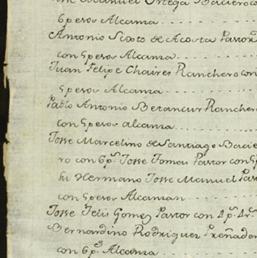 Manuel Ortega Baciero
6 pesos Alcamia
Antonio Sixto de Acosta Pastor
con 5 pesos Alcamia
Juan Felipe Chaires Ranchero con
5 pesos Alcamia
Pablo Antonio Betancur Ranchero
con 6 pesos alcamia
Josse Marcelino de Santiago Bacie
ro con 6 p.s Josse Tomas Pastor con 5 p
su Hermano Josse Manuel Pas
con 5 pesos Alcaman
Josse Felis Gomes Pastor con 4 p.s 4 r.s
Bernardino Rodriguez
con 6 p.s Alcamia